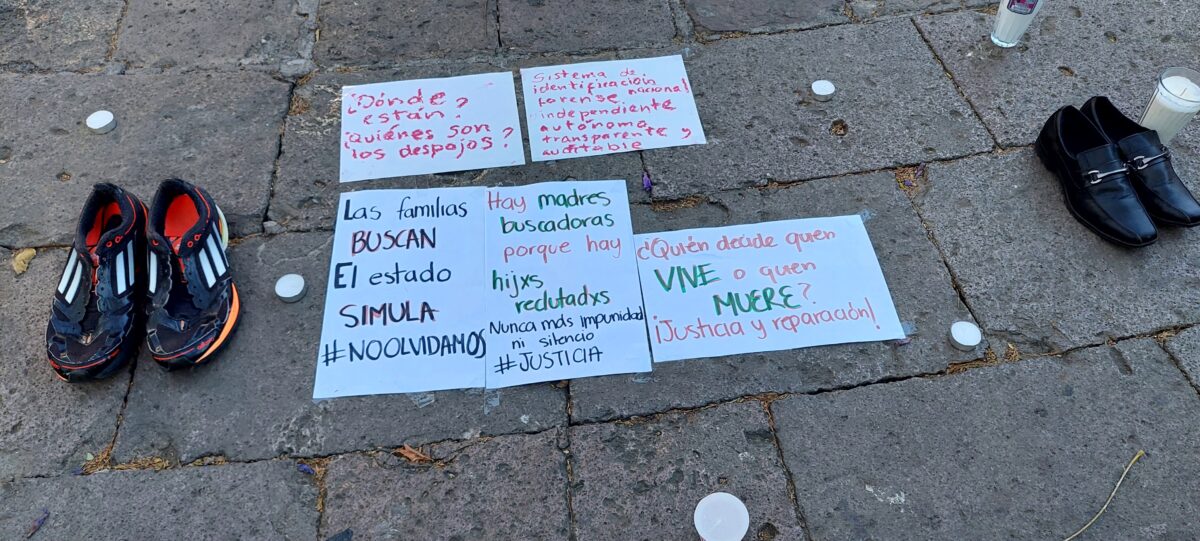 ¿Dónde
están?
¿Quiénes son
los despojos?
Sistema de
identificación
forense nacional
independiente
autónomo
transparente y
auditable
Las familias
BUSCAN
El estado
SIMULA
#NOOLVIDAMOS
Hay madres
buscadoras
porque hay
hijxs
reclutadxs
Nunca más impunidad
ni silencio
#JUSTICIA
¿Quién decide quien
VIVE o quien
MUERE?
¡Justicia y reparación!